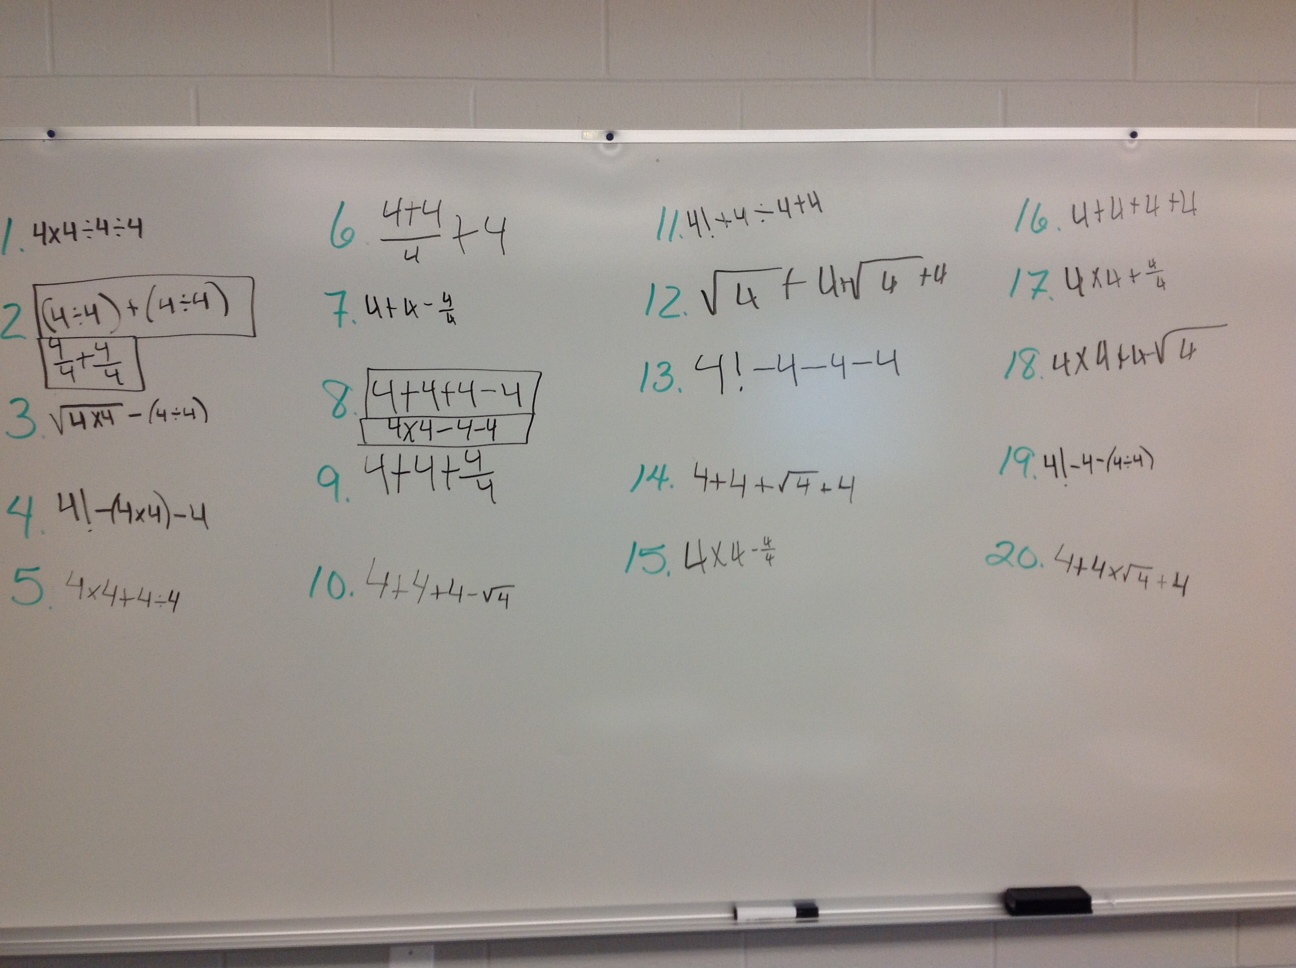 1. 4×4÷4÷4
2 (4÷4)+(4÷4)
4/4+4/4
3. √4×4 -(4÷4)
4. 4!-(4×4)-4
5. 4×4+4÷4
6. 4+4/4+4
7. 4+4-4/4
8. 4+4+4-4
4×4-4-4
9. 4+4+4/4
10. 4+4+4-√4
11. 4!+4÷4+4
12. √4+4+√4+4
13. 4!-4-4-4
14. 4+4+√4+4
15. 4×4-4/4
16. 4+4+4+4
17. 4×4+4/4
18. 4×4+4-√4
19. 4!-4-(4÷4)
20. 4+4×√4+4